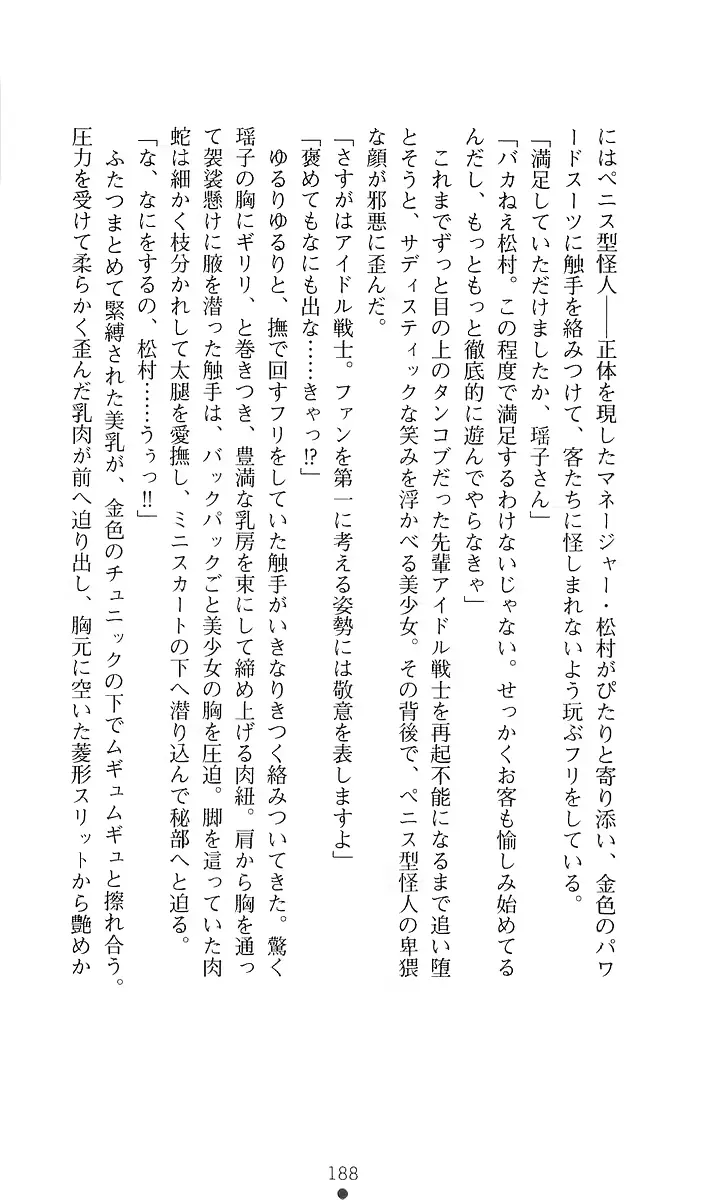 にはペニス型怪人――正体を現したマネージャー・松村がぴたりと寄り添い、金色のパワ
ードスーツに触手を絡みつけて、客たちに怪しまれないよう玩ぶフリをしている。
「満足していただけましたか、瑶子さん」
「バカねえ松村。この程度で満足するわけないじゃない。せっかくお客も愉しみ始めてる
んだし、もっともっと徹底的に遊んでやらなきゃ」
これまでずっと目の上のタンコブだった先輩アイドル戦士を再起不能になるまで追い堕
とそうと、サディスティックな笑みを浮かべる美少女。その背後で、ペニス型怪人の卑猥
な顔が邪悪に歪んだ。
「さすがはアイドル戦士。ファンを第一に考える姿勢には敬意を表しますよ」
「褒めてもなにも出な……きゃっ!?」
ゆるりゆるりと、撫で回すフリをしていた触手がいきなりきつく絡みついてきた。驚く
瑶子の胸にギリリ、と巻きつき、豊満な乳房を束にして締め上げる肉紐。肩から胸を通っ
て袈裟懸けに腋を潜った触手は、バックパックごと美少女の胸を圧迫。脚を這っていた肉
蛇は細かく枝分かれして太腿を愛撫し、ミニスカートの下へ潜り込んで秘部へと迫る。
「な、なにをするの、松村……うぅっ!!」
ふたつまとめて緊縛された美乳が、金色のチュニックの下でムギュムギュと擦れ合う。
圧力を受けて柔らかく歪んだ乳肉が前へ迫り出し、胸元に空いた菱形スリットから艶めか
188